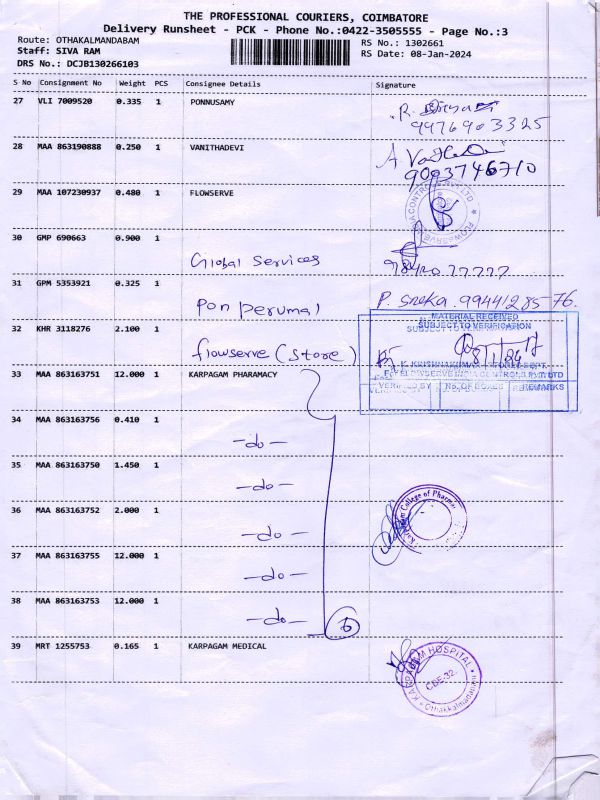 THE PROFESSIONAL COURIERS, COIMBATORE
Delivery Runsheet - PCK - Phone No.:0422-3505555 - Page No.:3
Route: OTHAKALMANDABAM
Staff: SIVA RAM
DRS No.: DCJB130266103
RS No.: 1302661
RS Date: 08-Jan-2024
S No Consignment No Weight PCS Consignee Details Signature
27 VLI 7009520 0.335 1 PONNUSAMY
9976903325
28 MAA 863190888 0.250 1 VANITHADEVI
9003746710
29 MAA 107230937 0.480 1 FLOWSERVE
30 GMP 690663 0.900 1 Global Services
31 GPM 5353921 0.325 1 Pon perumal P. Sneka 9944128576
32 KHR 3118276 2.100 1 flowserve (Store)
MATERIAL RECEIVED
SUBJECT TO VERIFICATION
8/1/24
VERIFIED BY No. OF BOXES REMARKS
33 MAA 863163751 12.000 1 KARPAGAM PHARAMACY
34 MAA 863163756 0.410 1 -do-
35 MAA 863163750 1.450 1 -do-
36 MAA 863163752 2.000 1 -do-
Karpagam College of Pharmacy
37 MAA 863163755 12.000 1 -do-
38 MAA 863163753 12.000 1 -do-
6
39 MRT 1255753 0.165 1 KARPAGAM MEDICAL
KARPAGAM HOSPITAL
CBE-32.